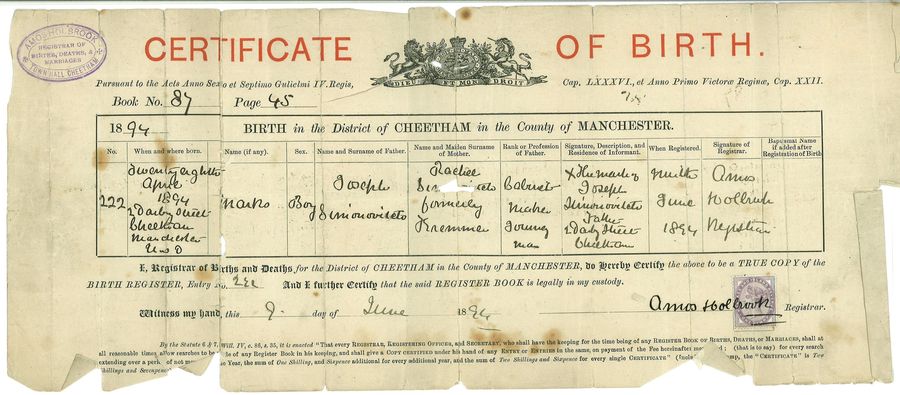 AMOS HOLBROOK
REGISTRAR OF
BIRTHS, DEATHS, &
MARRIAGES
TOWN HALL CHEETHAM
CERTIFICATE OF BIRTH.
DIEU ET MON DROIT
Pursuant to the Acts Anno Sexto et Septimo Gulielmi IV. Regis, Cap. LXXXVI., et Anno Primo Victoræ Reginæ, Cap. XXII.
Book No. 87 Page 45
1894 BIRTH in the District of CHEETHAM in the County of MANCHESTER.
No.
When and where born.
Name (if any).
Sex.
Name and Surname of Father.
Name and Maiden Surname
of Mother.
Rank or Profession
of Father.
Signature, Description, and
Residence of Informant.
When Registered.
Signature of
Registrar.
Baptismal Name
if added after
Registration of Birth
222
Twenty eighth
April
1894
2 Darby Street
Cheetham
Manchester
Marks
Boy
Joseph
Simonovitets
Rachel
formerly
Kremmer
Cabinet
Maker
Young
man
X The mark of
Joseph
Simonovitets
Father
2 Darby Street
Cheetham
Ninth
June
1894
Amos
Holbrook
Registrar
I, Registrar of Births and Deaths, for the District of CHEETHAM in the County of MANCHESTER, do Hereby Certify the above to be a TRUE COPY of the
BIRTH REGISTER, Entry No. 222 And I further Certify that the said REGISTER BOOK is legally in my custody.
Witness my hand, this 9. day of June 1894 Amos Holbrook Registrar.
By the Statute 6 & 7, Will. IV, c. 86, s. 35, it is enacted "That every REGISTRAR, REGISTERING OFFICER, and SECRETARY, who shall have the keeping for the time being of any REGISTER BOOK OF BIRTHS, DEATHS, OR MARRIAGES, shall at
all reasonable times allow searches to be made of any Register Book in his keeping, and shall give a COPY CERTIFIED under his hand of any ENTRY OR ENTRIES in the same, on payment of the Fee hereinafter : (that is to say) for every search
extending over a period not Year, the sum of One Shilling, and Sixpence additional for every additional year, and the sum of Two Shillings and Sixpence for every single CERTIFICATE" the "CERTIFICATE" is Two
Shillings and Sevenpence